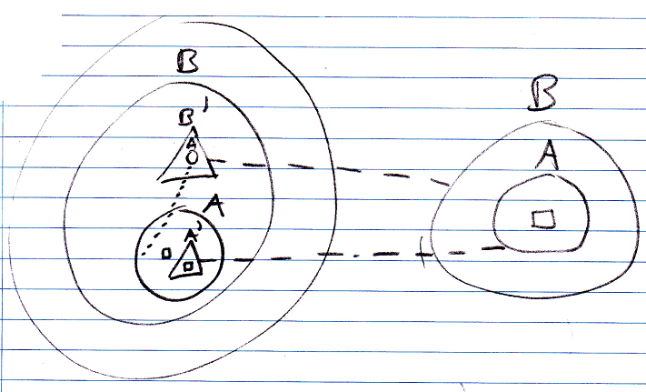 B
B'
A
A
A'
B
A